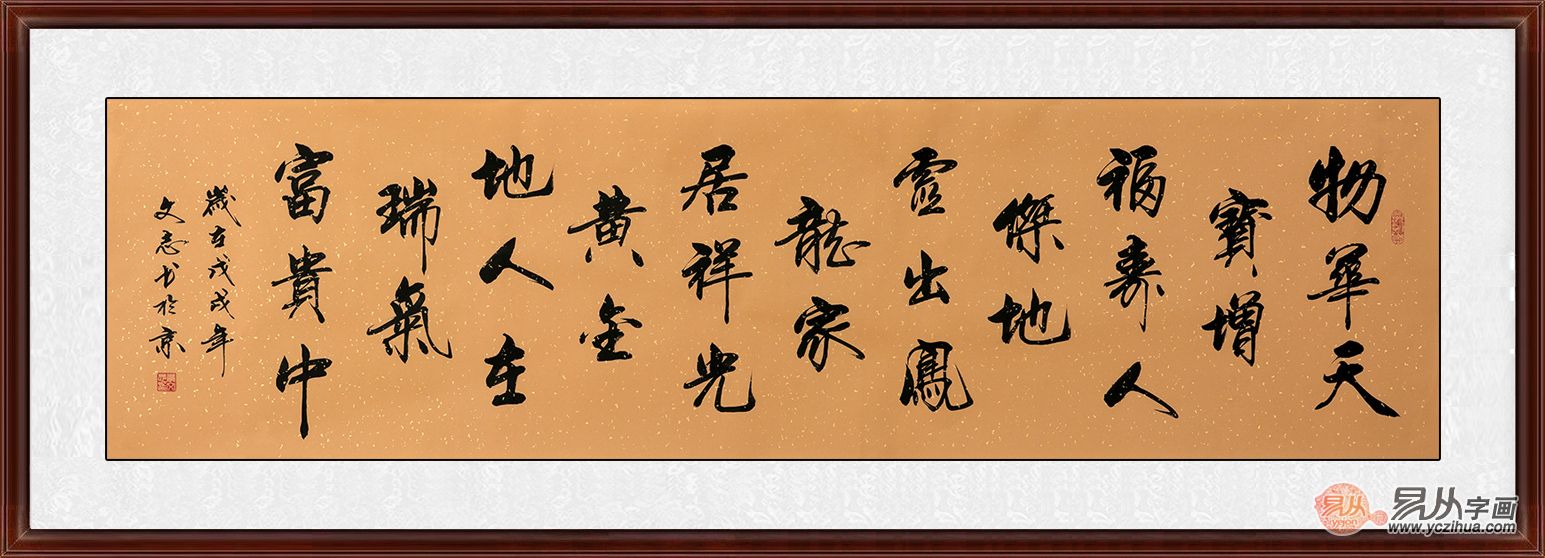 物華天
寶增
福壽人
傑地
靈出鳳
龍家
居祥光
黄金
地人在
瑞氣
富貴中
歲在戊戌年
文志书於京
易从字画
www.yczihua.com
易从
yejon